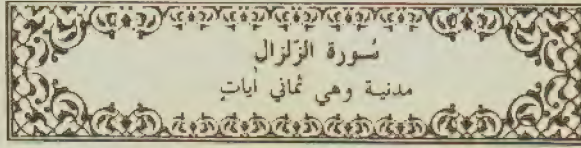 سورة الزّلزال
مدنية وهي ثماني أيات